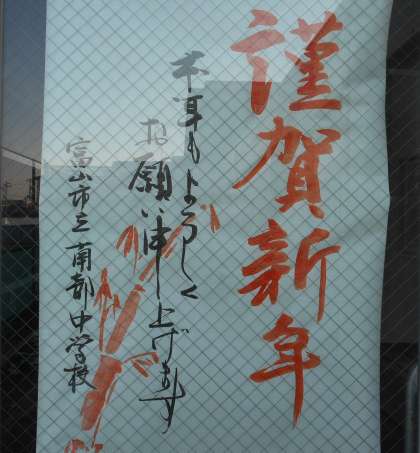 謹賀新年
本年もよろしく
お願い申し上げます
富山市立南部中学校